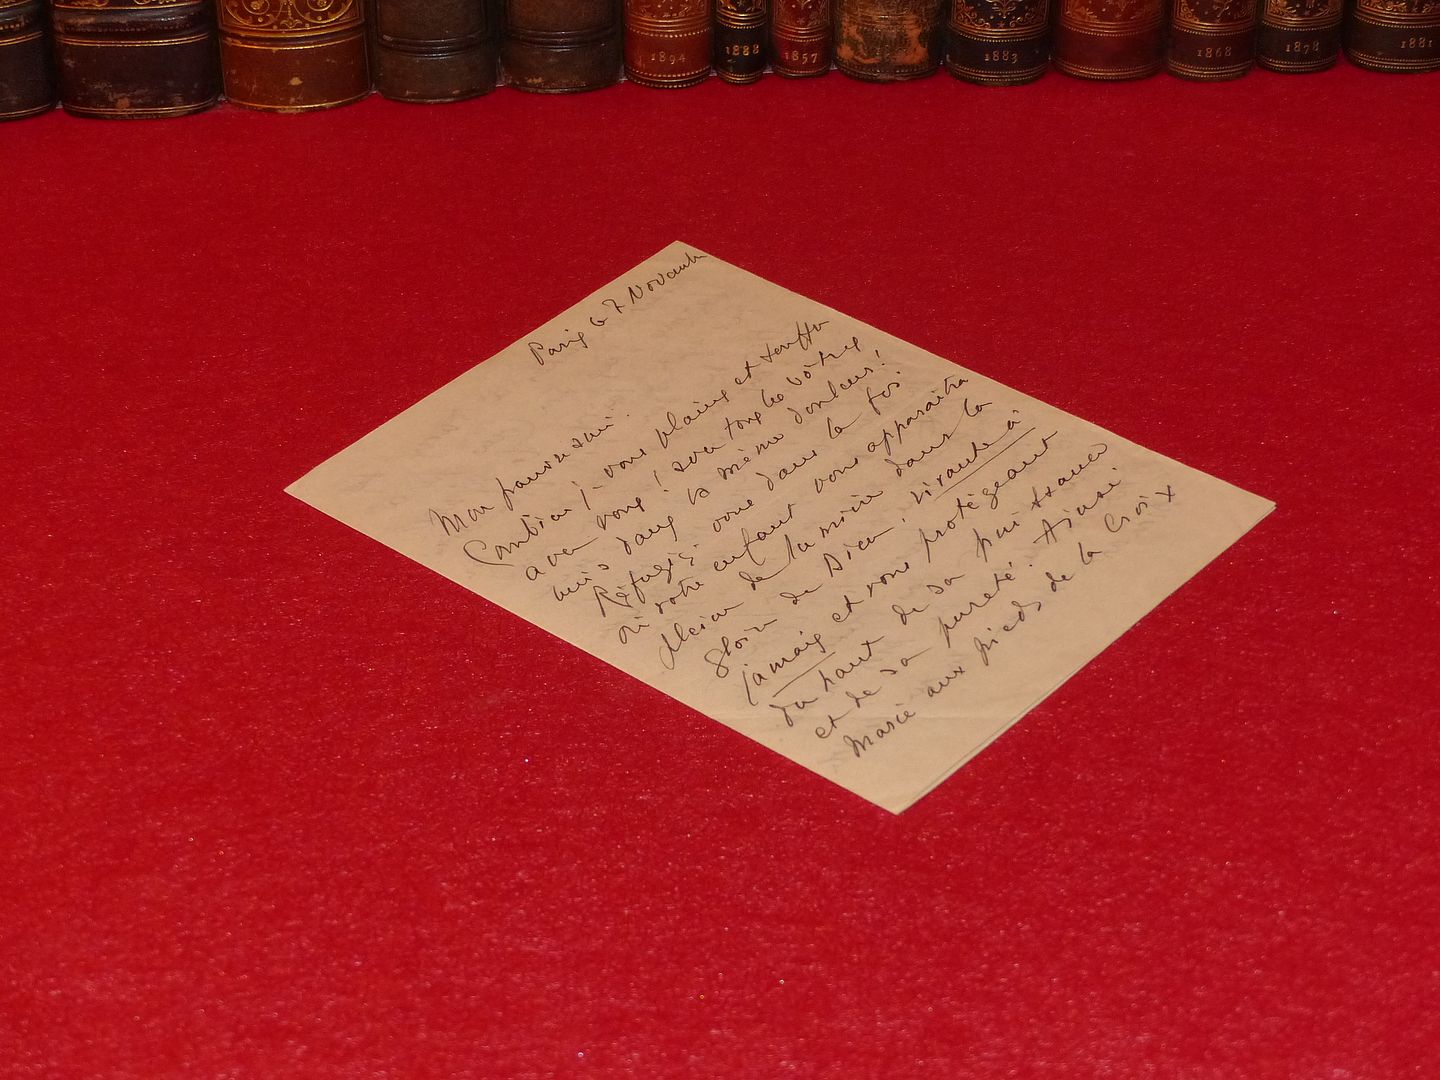 1894
1888
1857
1883
1868
1878
1881
Paris le 7 Novembre
Mon pauvre ami.
Combien je vous plains et souffre
avec vous ! avec tous les vôtres
unis dans la même douleur !
Réfugiez vous dans la foi
où votre enfant vous apparaîtra
de la mère dans la
gloire de Dieu, vivante à
jamais et vous protégeant
du haut de sa puissance
et de sa pureté. Ainsi
Marie aux pieds de la Croix